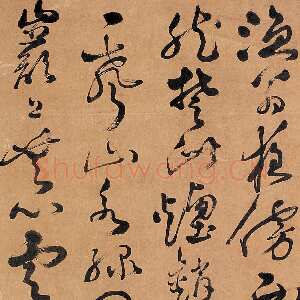 漁翁夜傍
然楚竹煙銷
一聲山水綠
巖上無心雲